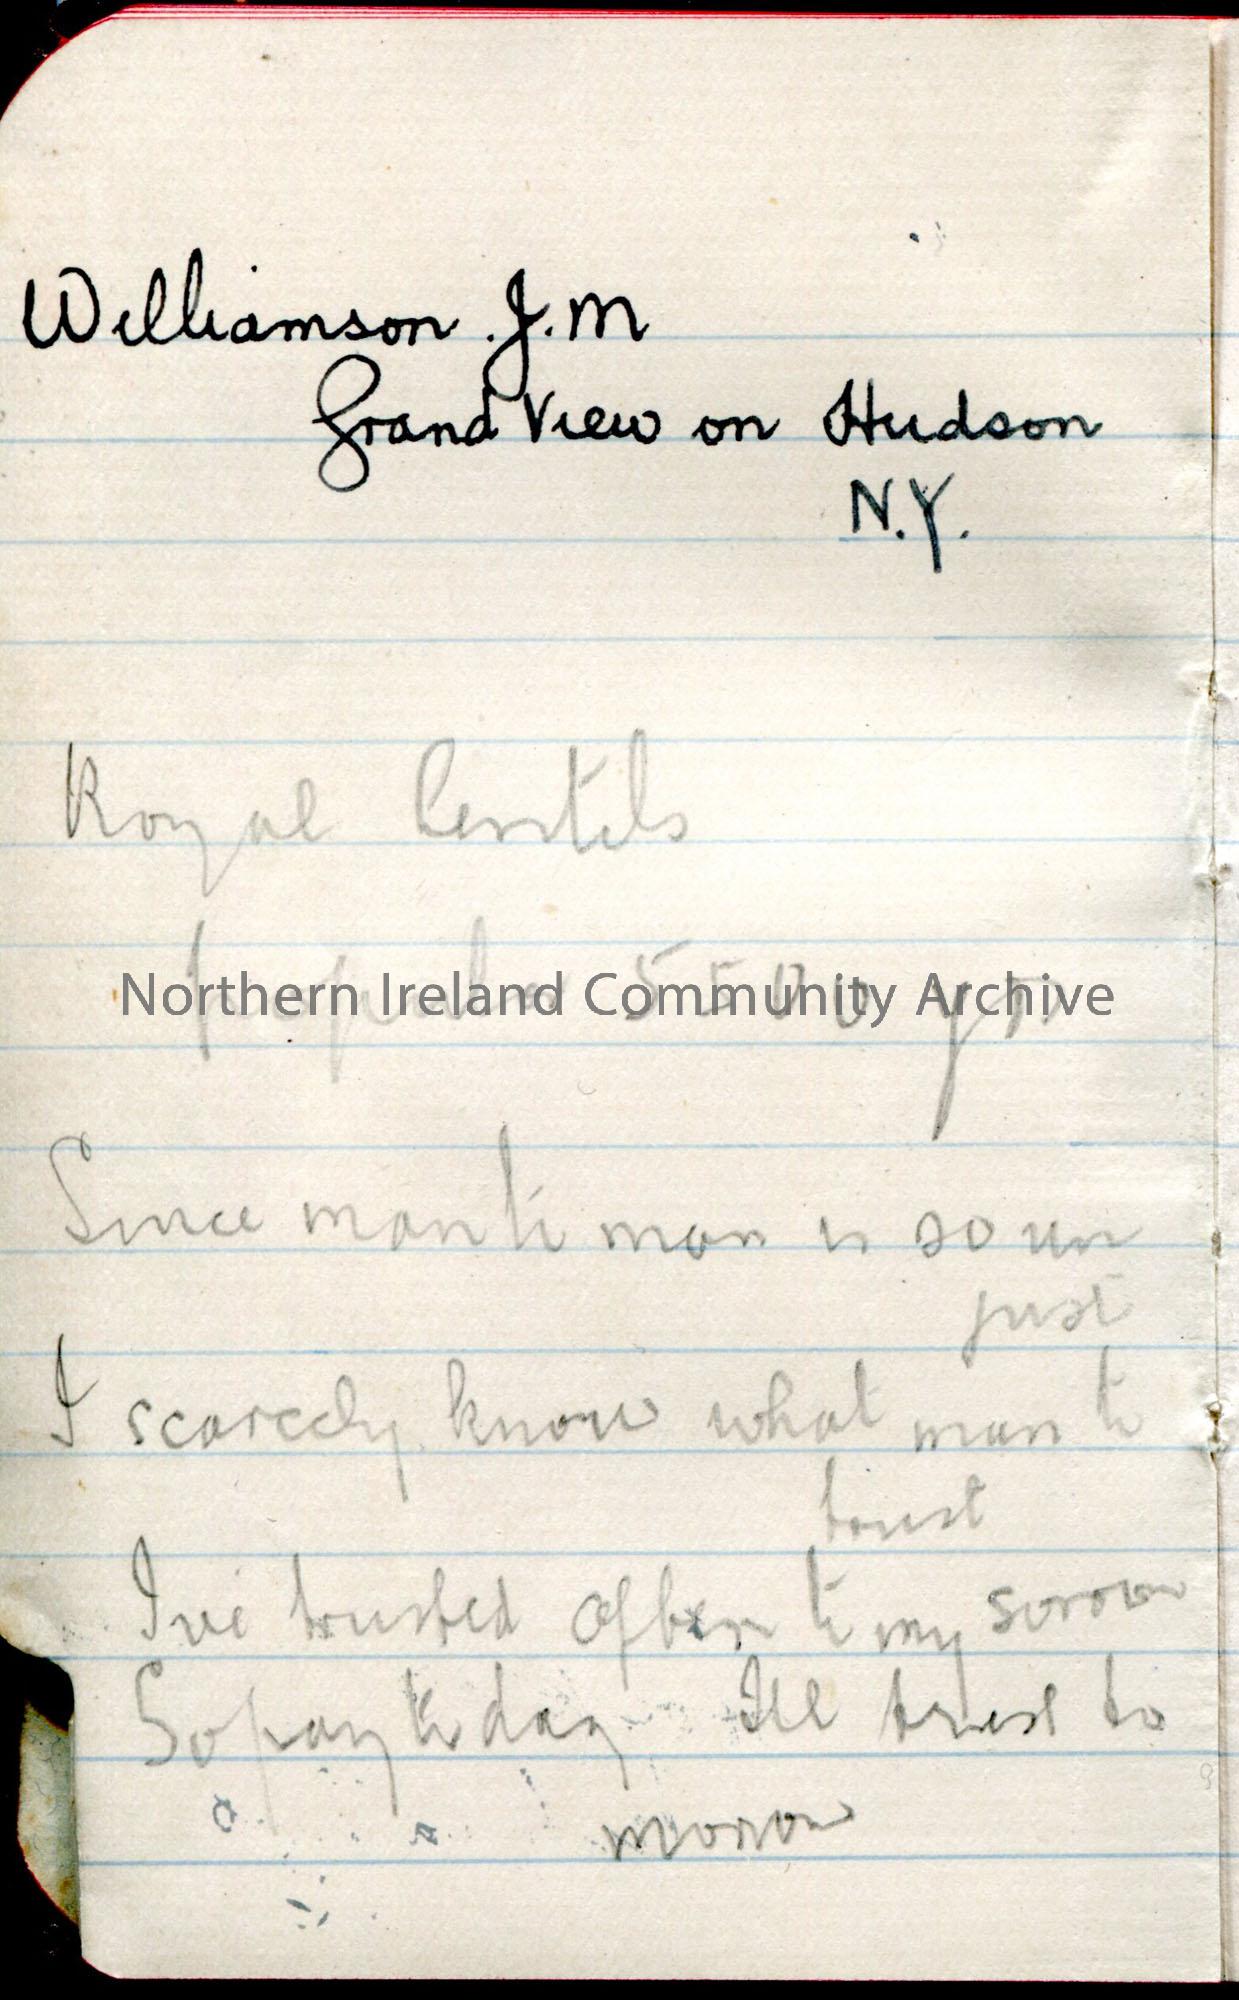 Williamson. J. M
Grand View on Hudson
N.Y.
Royal
Northern Ireland Community Archive
5500
Since man to man is so un
just
I scarcely know what man to
trust
I've trusted often to my sorrow
So pay to day I'll trust to
morrow